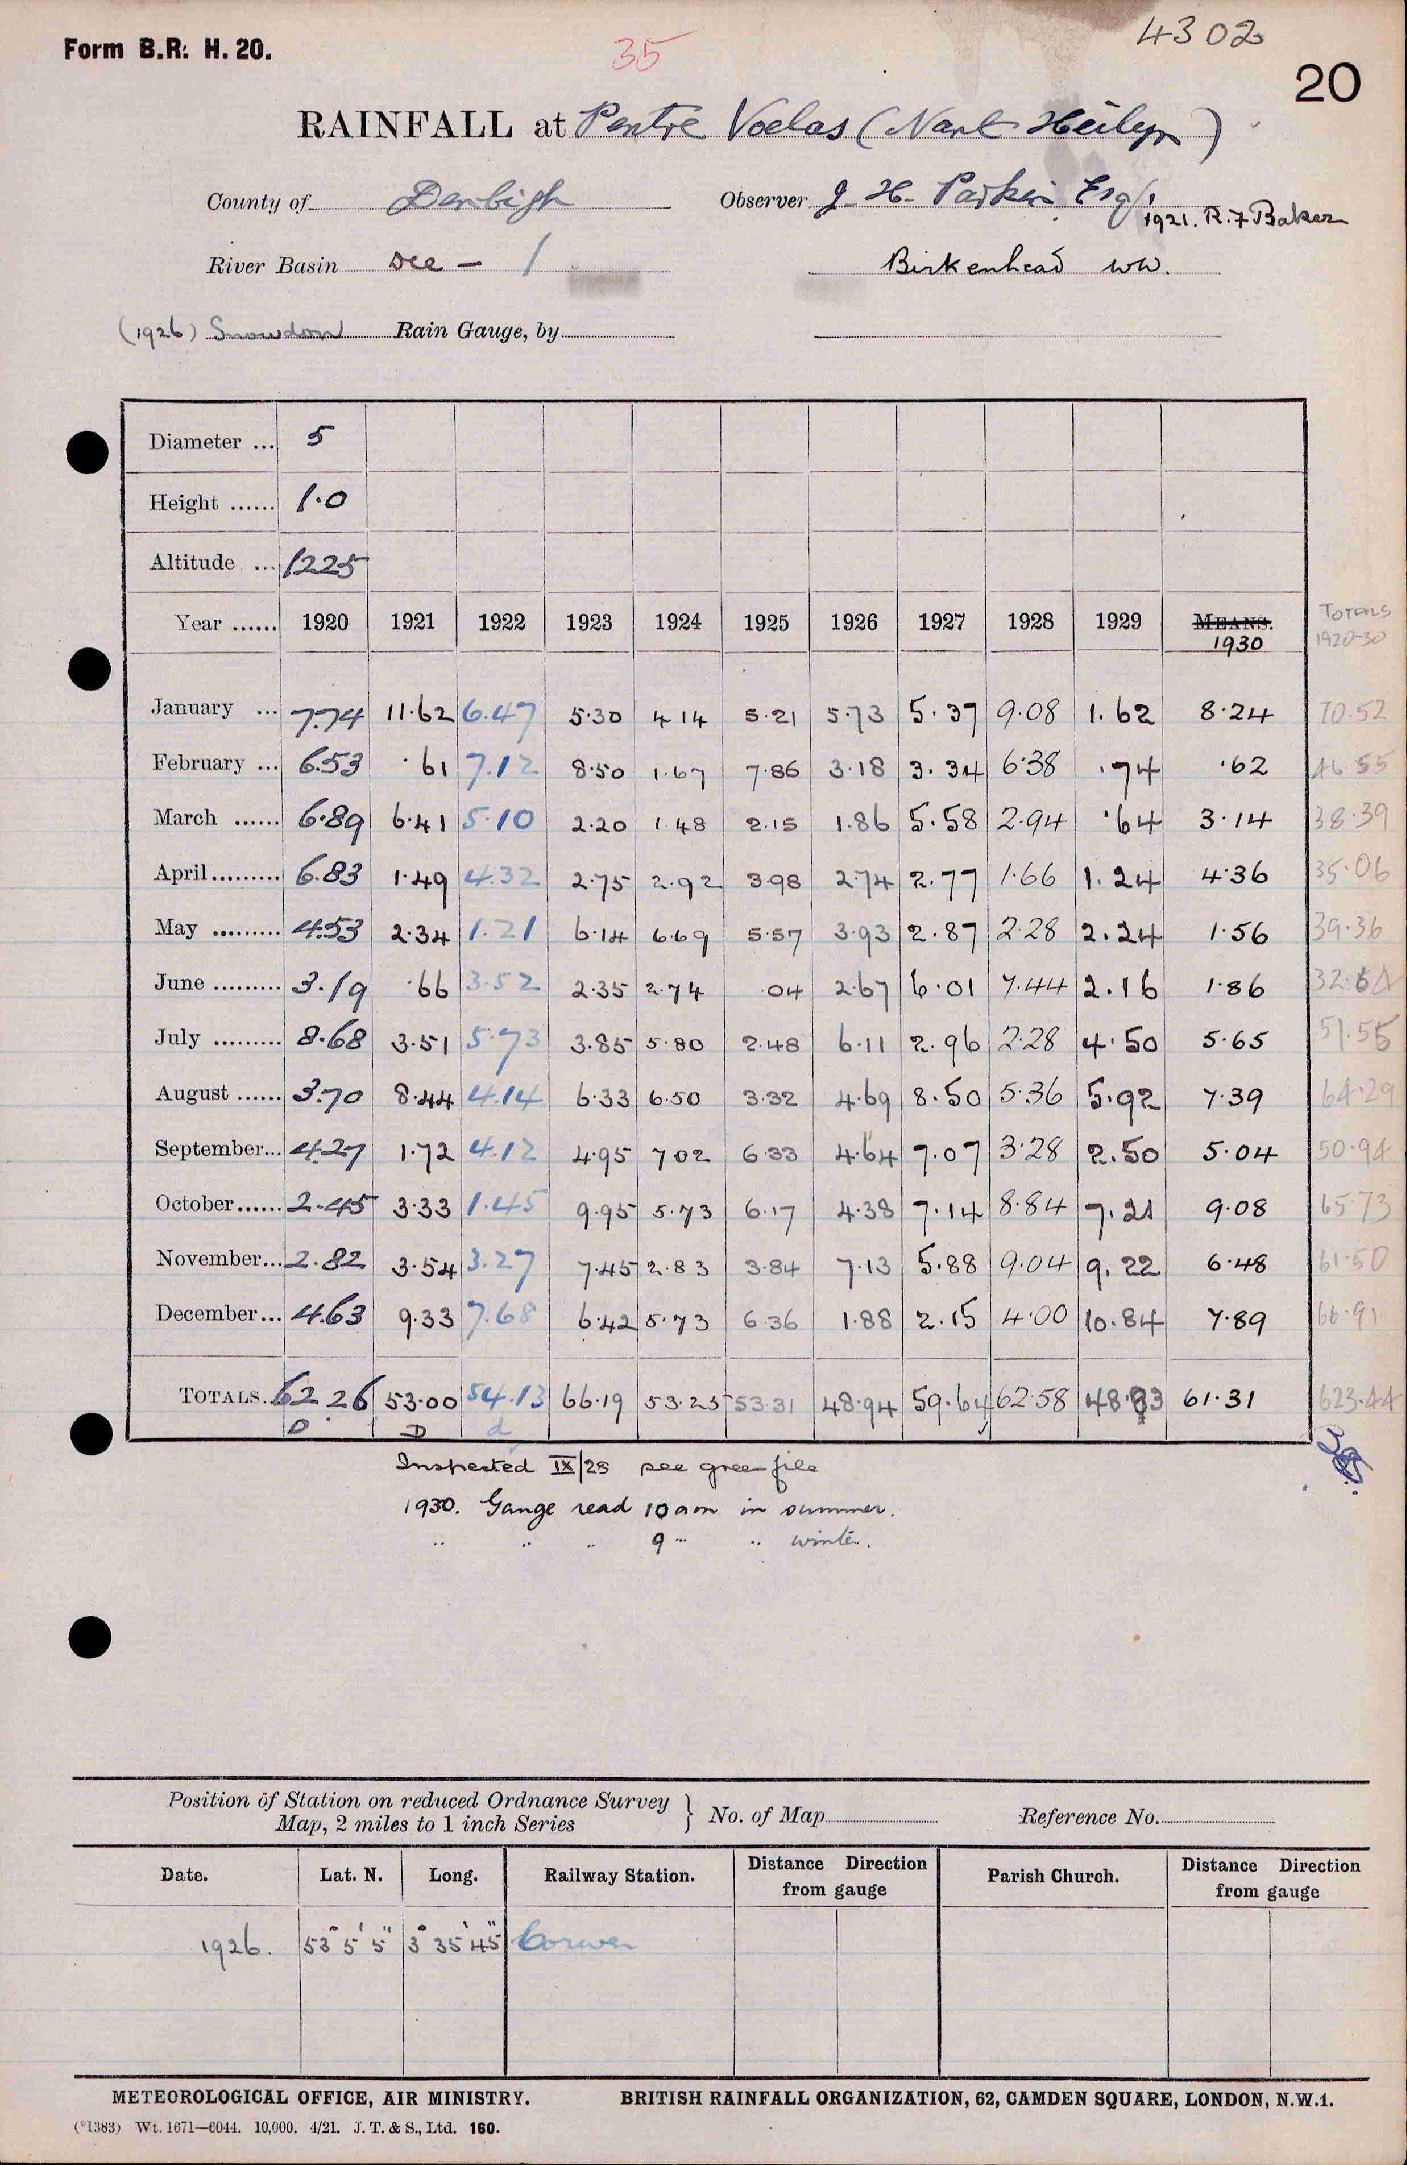 Form B.R. H. 20.
35
4302
20
RAINFALL at Pentre Voelas (Nant Heilyn)
County of Denbigh
Observer J. H. Parkin Esq
1921. R. F Baker
River Basin Dee - 1
Birkenhead WW.
(1926) Snowdon Rain Gauge, by
Diameter ... 5
Height ...... 1.0
Altitude ... 1225
Year ...... 1920 1921 1922 1923 1924 1925 1926 1927 1928 1929 MEANS. 1930 TOTALS 1920-30
January ... 7.74 11.62 6.47 5.30 4 14 5.21 5.73 5.37 9.08 1.62 8.24 70.52
February ... 6.53 .61 7.12 8.50 1.67 7.86 3.18 3.34 6.38 .74 .62 46.55
March ...... 6.89 6.41 5.10 2.20 1.48 2.15 1.86 5.58 2.94 .64 3.14 38.39
April ......... 6.83 1.49 4.32 2.75 2.92 3.98 2.74 2.77 1.66 1.24 4.36 35.06
May ......... 4.53 2.34 1.21 6.14 6.69 5.57 3.93 2.87 2.28 2.24 1.56 39.36
June ......... 3.19 .66 3.52 2.35 2.74 .04 2.67 6.01 7.44 2.16 1.86 32.64
July ......... 8.68 3.51 5.73 3.85 5.80 2.48 6.11 2.96 2.28 4.50 5.65 51.55
August ...... 3.70 8.44 4.14 6.33 6.50 3.32 4.69 8.50 5.36 5.92 7.39 64.29
September... 4.27 1.72 4.12 4.95 7 02 6.33 4.64 7.07 3.28 2.50 5.04 50.94
October ...... 2.45 3.33 1.45 9.95 5.73 6.17 4.38 7.14 8.84 7.21 9.08 65.73
November... 2.82 3.54 3.27 7.45 2.83 3.84 7.13 5.88 9.04 9.22 6.48 61.50
December... 4.63 9.33 7.68 6.42 5.73 6.36 1.88 2.15 4.00 10.84 7.89 66.91
TOTALS. 62.26 53.00 54.13 66.19 53.25 53.31 48.94 59.64 62.58 48.83 61.31 623.44
D D d
Inspected IX/28 see green file
1930. Gauge read 10am in summer.
.. .. .. 9 .. .. winter.
Position of Station on reduced Ordnance Survey
Map, 2 miles to 1 inch Series } No. of Map Reference No.
Date. Lat. N. Long. Railway Station. Distance Direction from gauge Parish Church. Distance Direction from gauge
1926. 53° 5' 5" 3° 35' 45" Corwen
METEOROLOGICAL OFFICE, AIR MINISTRY. BRITISH RAINFALL ORGANIZATION, 62, CAMDEN SQUARE, LONDON, N.W.1.
(*1383) Wt. 1671—6044. 10,000. 4/21. J. T. & S., Ltd. 160.